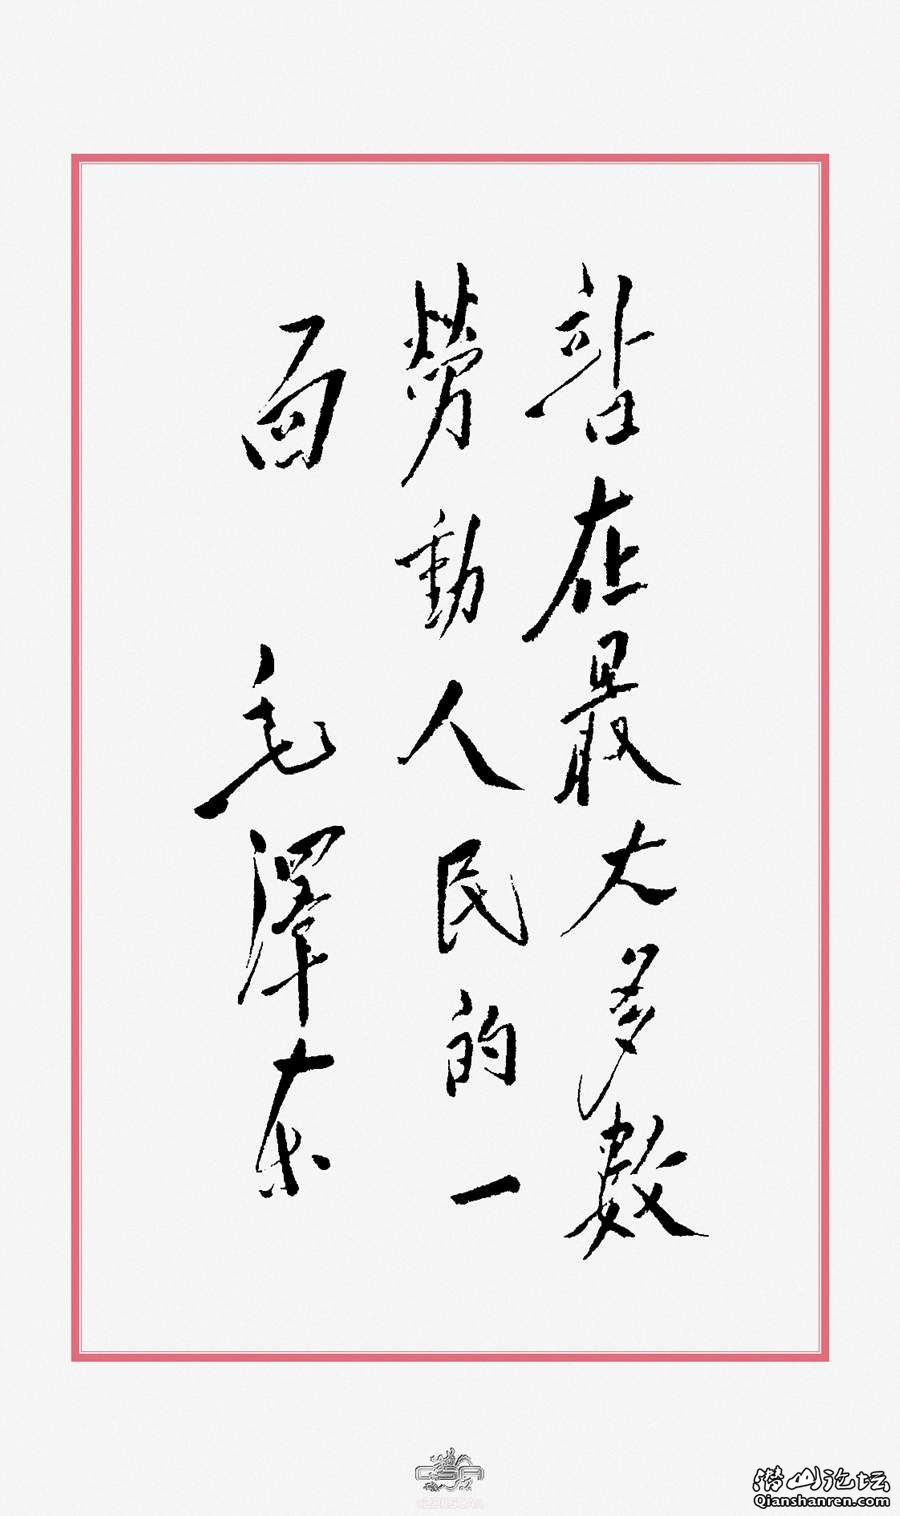 站在最大多數
勞動人民的一
面 毛澤東
潜山论坛
Qianshanren.com